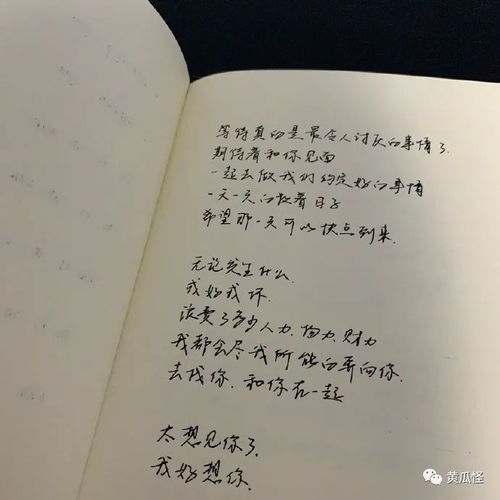 等待真的是最令人讨厌的事情了.
期待着和你见面
一起去做我们约定好的事情
一天一天的数着日子
希望那一天可以快点到来.
无论发生什么.
我好我坏.
浪费了多少人力.物力.财力
我都会尽我所能的奔向你.
去找你.和你在一起
太想见你了.
我好想你.
黄瓜怪